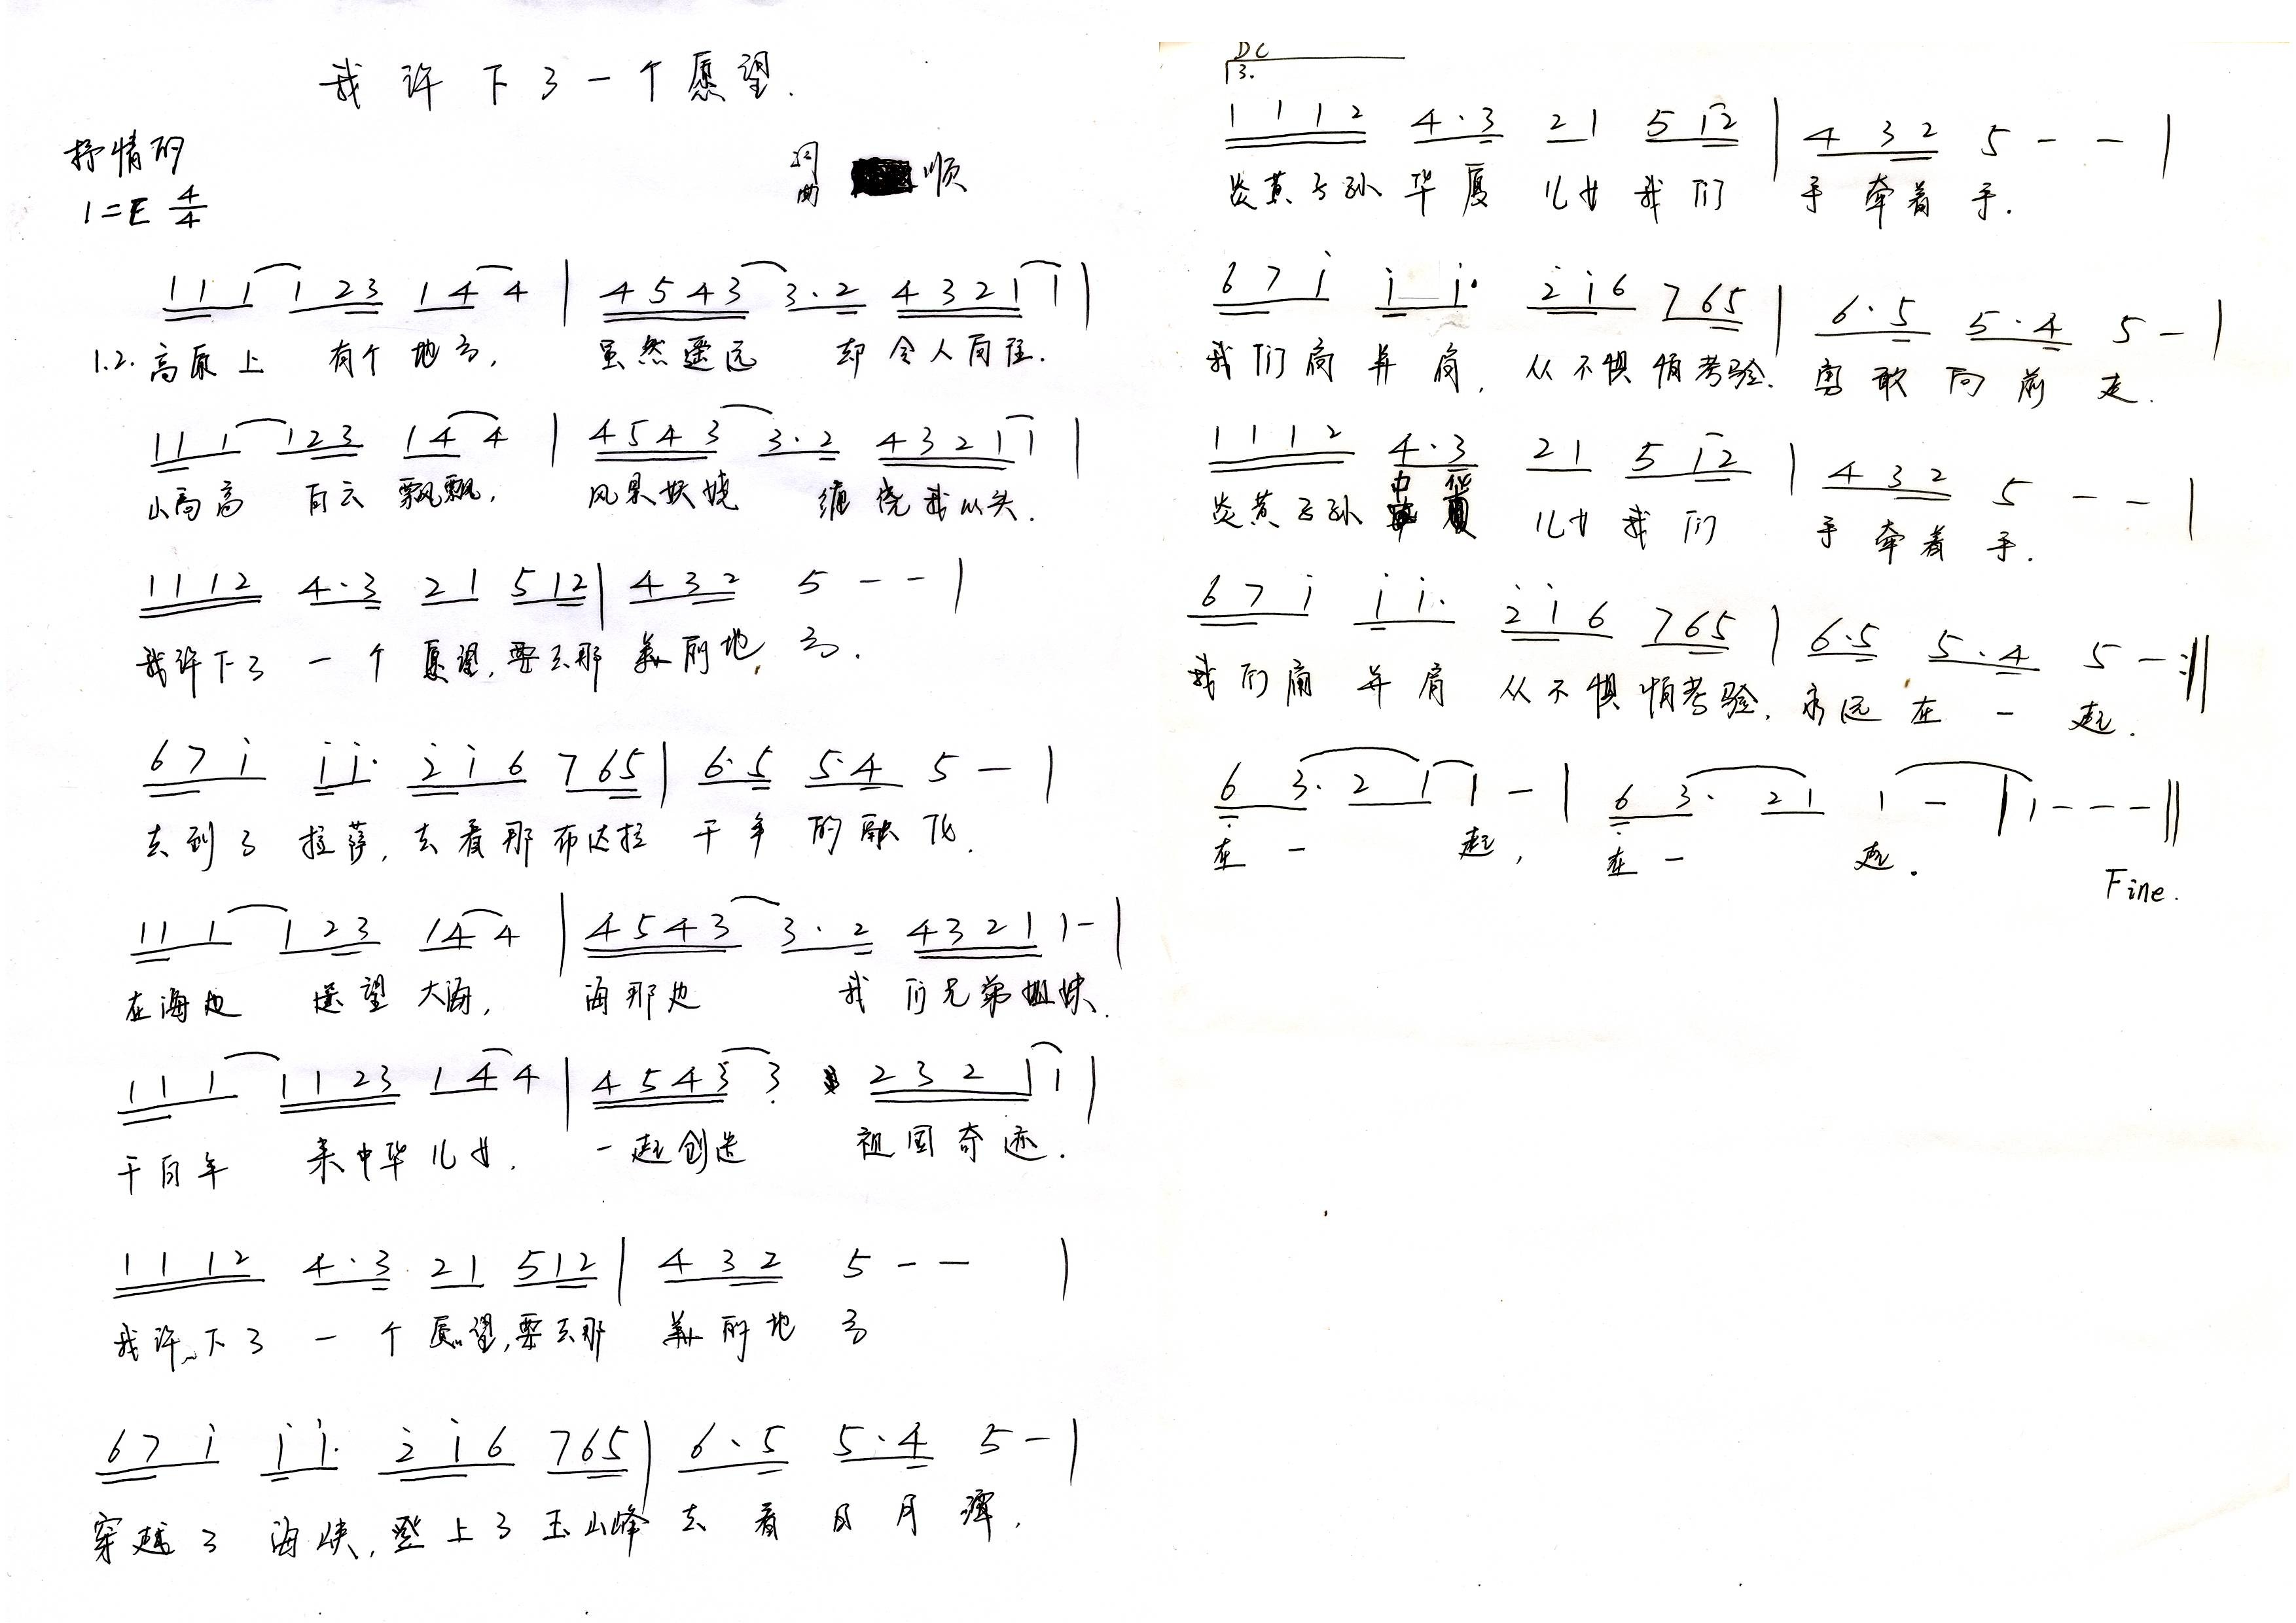 我许下了一个愿望.
抒情的
词
曲 顺
1=E 4/4
1 1 1 1 2 3 1 4 4 | 4 5 4 3 3 · 2 4 3 2 1 1 |
1.2. 高原上 有个地方, 虽然遥远 却令人向往.
1 1 1 1 2 3 1 4 4 | 4 5 4 3 3 · 2 4 3 2 1 1 |
山高高 白云飘飘, 风景妖娆 缠绕我心头.
1 1 1 2 4 · 3 2 1 5 1 2 | 4 3 2 5 - - |
我许下了 一个愿望, 要去那 美丽地方.
6 7 i i i · 2 i 6 7 6 5 | 6 · 5 5 · 4 5 - |
去到了拉萨, 去看那布达拉 千年的融化.
1 1 1 1 2 3 1 4 4 | 4 5 4 3 3 · 2 4 3 2 1 1 - |
在海边 遥望大海, 海那边 我们兄弟姐妹.
1 1 1 1 1 2 3 1 4 4 | 4 5 4 3 3 2 3 2 1 1 |
千百年 来中华儿女. 一起创造 祖国奇迹.
1 1 1 2 4 · 3 2 1 5 1 2 | 4 3 2 5 - - |
我许下了 一个愿望, 要去那 美丽地方
6 7 i i i · 2 i 6 7 6 5 | 6 · 5 5 · 4 5 - |
穿越了海峡, 登上了玉山峰 去看日月潭.
DC
3.
1 1 1 2 4 · 3 2 1 5 1 2 | 4 3 2 5 - - |
炎黄子孙 华夏儿女 我们 手牵着手.
6 7 i i i · 2 i 6 7 6 5 | 6 · 5 5 · 4 5 - |
我们肩并肩, 从不惧怕考验. 勇敢向前走.
1 1 1 2 4 · 3 2 1 5 1 2 | 4 3 2 5 - - |
炎黄子孙 中华儿女 我们 手牵着手.
6 7 i i i · 2 i 6 7 6 5 | 6 · 5 5 · 4 5 - :||
我们肩并肩 从不惧怕考验, 永远在一起.
6 3 · 2 1 1 - | 6 3 · 2 1 1 - | 1 - - - ||
在一 起, 在一 起.
Fine.